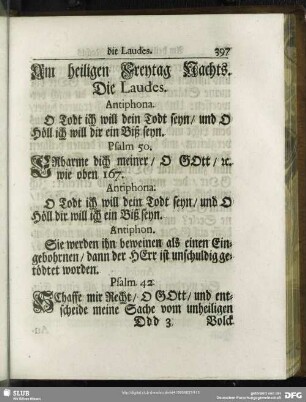 die Laudes. 397
Am heiligen Freytag Nachts.
Die Laudes.
Antiphona.
O Todt ich will dein Todt seyn/ und O
Höll ich will dir ein Biß seyn.
Psalm 50.
ERbarme dich meiner/ O GOtt/ ꝛc.
wie oben 167.
Antiphona.
O Todt ich will dein Todt seyn/ und O
Höll dir will ich ein Biß seyn.
Antiphon.
Sie werden ihn beweinen als einen Ein-
gebohrnen/ dann der HErr ist unschuldig ge-
tödtet worden.
Psalm. 42.
SChaffe mir Recht/ O GOtt/ und ent-
scheide meine Sache vom unheiligen
Ddd 3. Volck
SLUB
DFG